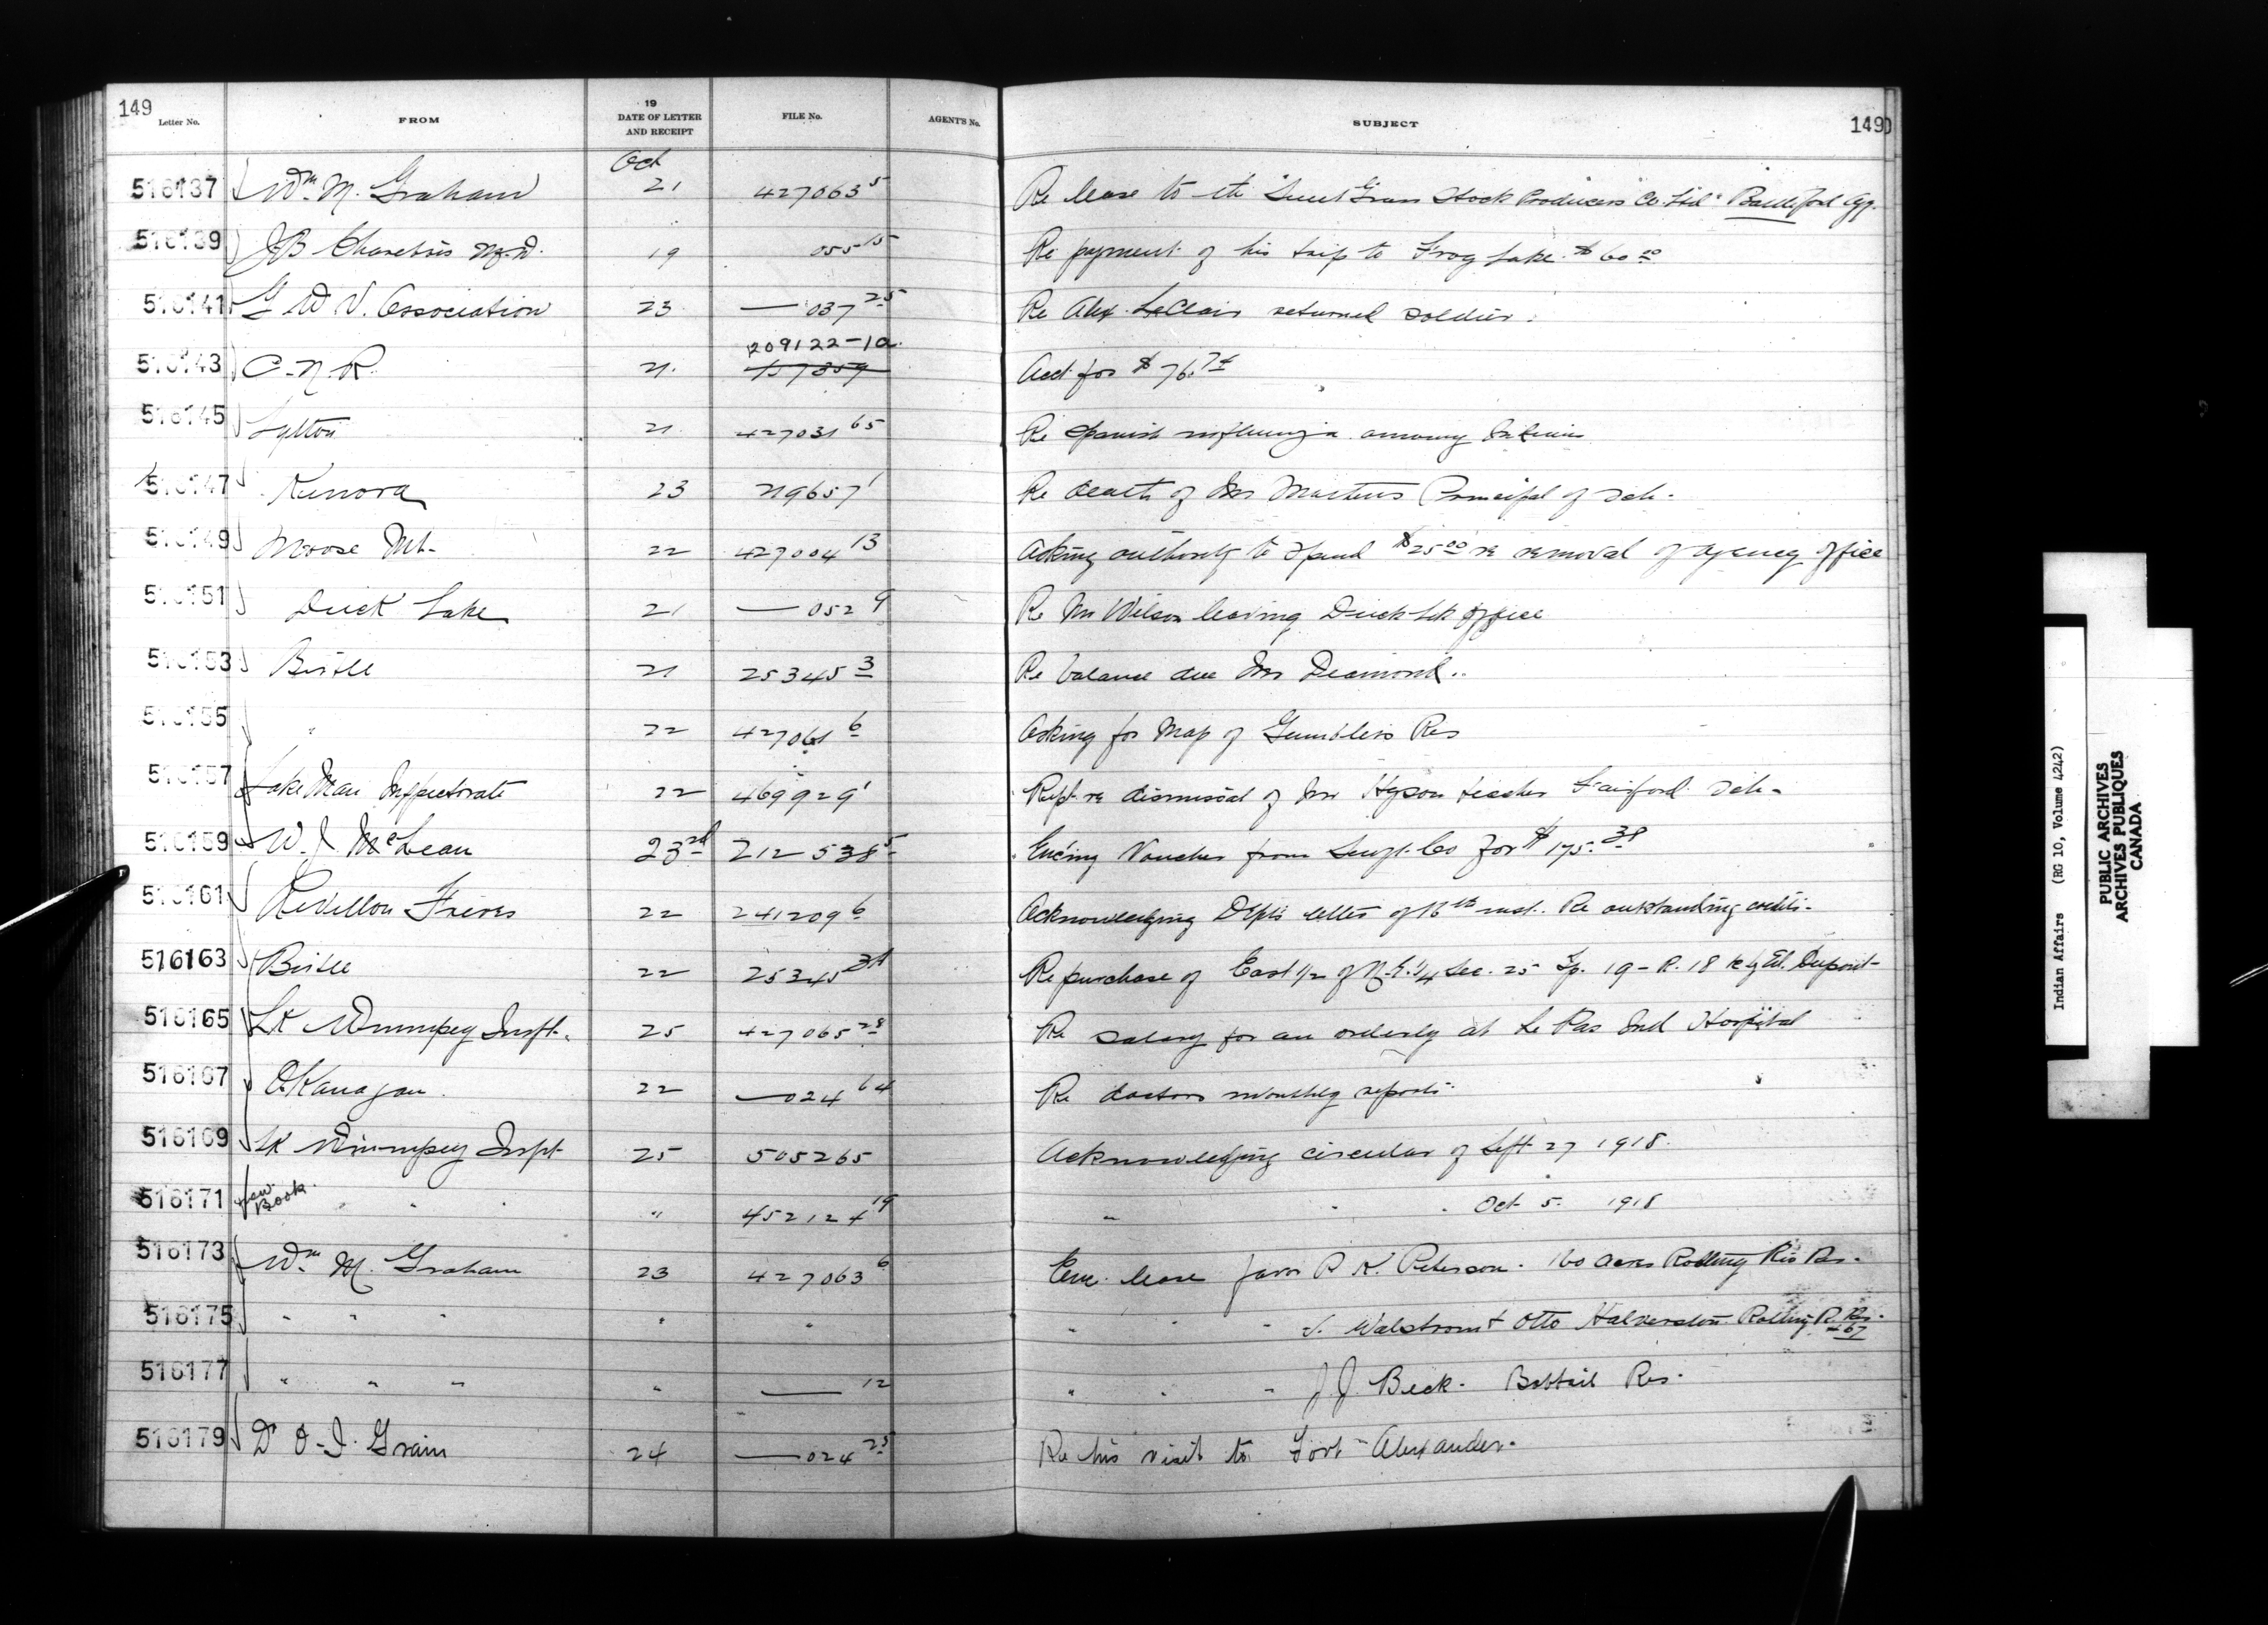 149
Letter No. FROM 19 DATE OF LETTER AND RECEIPT FILE No. AGENT'S No. SUBJECT 149
Oct
516137 Wm. M. Graham 21 427063 5 Re lease to the "Sweet Grass Stock Producers Co. Ltd" Battleford Agy.
516139 J B M.D. 19 055 15 Re payment of his trip to Frog Lake $60.00
516141 G W V. Association 23 — 037 25 Re Alex LaClair returned soldier.
209122-1a
516143 C. N. R. 21 Acct for $76.74
516145 Lytton 21 427031 65 Re Spanish influenza among Indians
516147 Kenora 23 219657 1 Re death of Mr Masters Principal of Sch.
516149 Moose Mt. 22 427004 13 Asking authority to spend $25.00 re removal of agency office
516151 Duck Lake 21 — 052 9 Re Mr Wilson leaving Duck Lk Office
516153 Birtle 21 25345 3 Re balance due Mr Diamond..
516155 " 22 427061 6 Asking for Map of Gamblers Res
516157 Lake Man Inspectorate 22 469929 1 Rept re dismissal of Mr Hyson teacher Fairford Sch.
516159 W. J. McLean 23rd 212538 5 Enc'ing Voucher from Co for $175.38
516161 Revillon Freres 22 241209 6 Acknowledging Dept's letter of 16th inst. Re outstanding credits.
516163 Birtle 22 25345 Re purchase of East 1/2 of N.E. 1/4 Sec. 25 Tp. 19 - R. 18
516165 Lk Winnipeg Inspt. 25 427065 28 Re salary for an orderly at Le Pas Ind Hospital
516167 Okanagan 22 — 024 64 Re doctors monthly reports
516169 Lk Winnipeg Inspt 25 505265 Acknowledging circular of Sept 27 1918.
516171 New Book " " " 452124 19 " " " Oct 5. 1918
516173 Wm. M. Graham 23 427063 6 Enc. lease favor P. K. Peterson. 160 acres Rolling Riv Res.
516175 " " " " " " " " J. Walstrom + Otto Halverston Rolling R. Res. #67
516177 " " " " — 12 " " " J. J. Beck. Bobtail Res.
516179 Dr O. I. Grain 24 — 024 25 Re his visit to Fort Alexander.
Indian Affairs (RG 10, Volume 4242)
PUBLIC ARCHIVES
ARCHIVES PUBLIQUES
CANADA